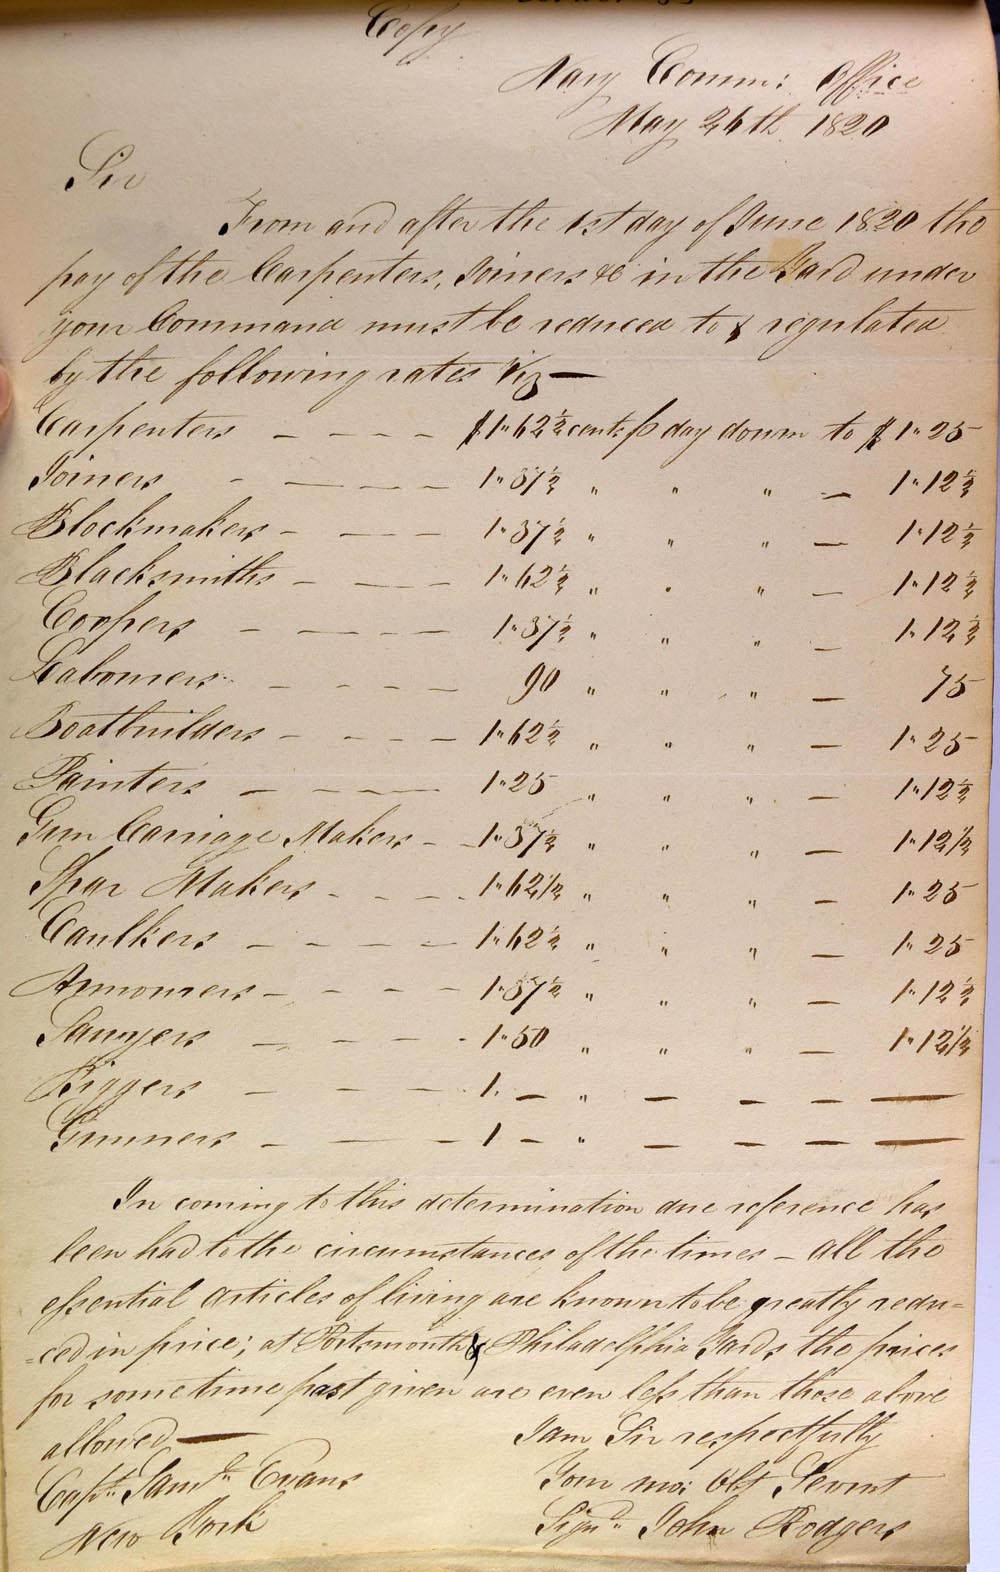 Copy
Navy Comm: Office
May 26th 1820
Sir
From and after the 1st day of June 1820 the
pay of the Carpenters, Joiners &c in the Yard under
your Command must be reduced to & regulated
by the following rates Viz —
Carpenters — — — — $1"62½ cents p day down to $1"25
Joiners - — — — 1"37½ " " " — 1"12½
Blockmakers — — — — 1"37½ " " " — 1"12½
Blacksmiths — — — — 1"62½ " " " — 1"12½
Coopers — — — — 1"37½ " " " — 1"12½
Labourers — — — — 90 " " " — 75
Boatbuilders — — — — 1"62½ " " " — 1"25
Painters — — — — 1"25 " " " — 1"12½
Gun Carriage Makers — — 1"37½ " " " — 1"12½
Spar Makers - - - - 1"62½ " " " — 1"25
Caulkers — — — — 1"62½ " " " — 1"25
Armourers — — — — 1"37½ " " " — 1"12½
Sawyers — — — - 1"50 " " " — 1"12½
Riggers — — — 1. — " — — — —
Gunners — — — 1 — " — — — —
In coming to this determination due reference has
been had to the circumstances of the times — all the
essential articles of living are known to be greatly redu=
=ced in price; at Portsmouth & Philadelphia Yards the prices
for some time past given are even less than those above
allowed —
I am Sir respectfully
Capt. Saml. Evans
Your mo: Obt Servnt
New York
Signd. John Rodgers